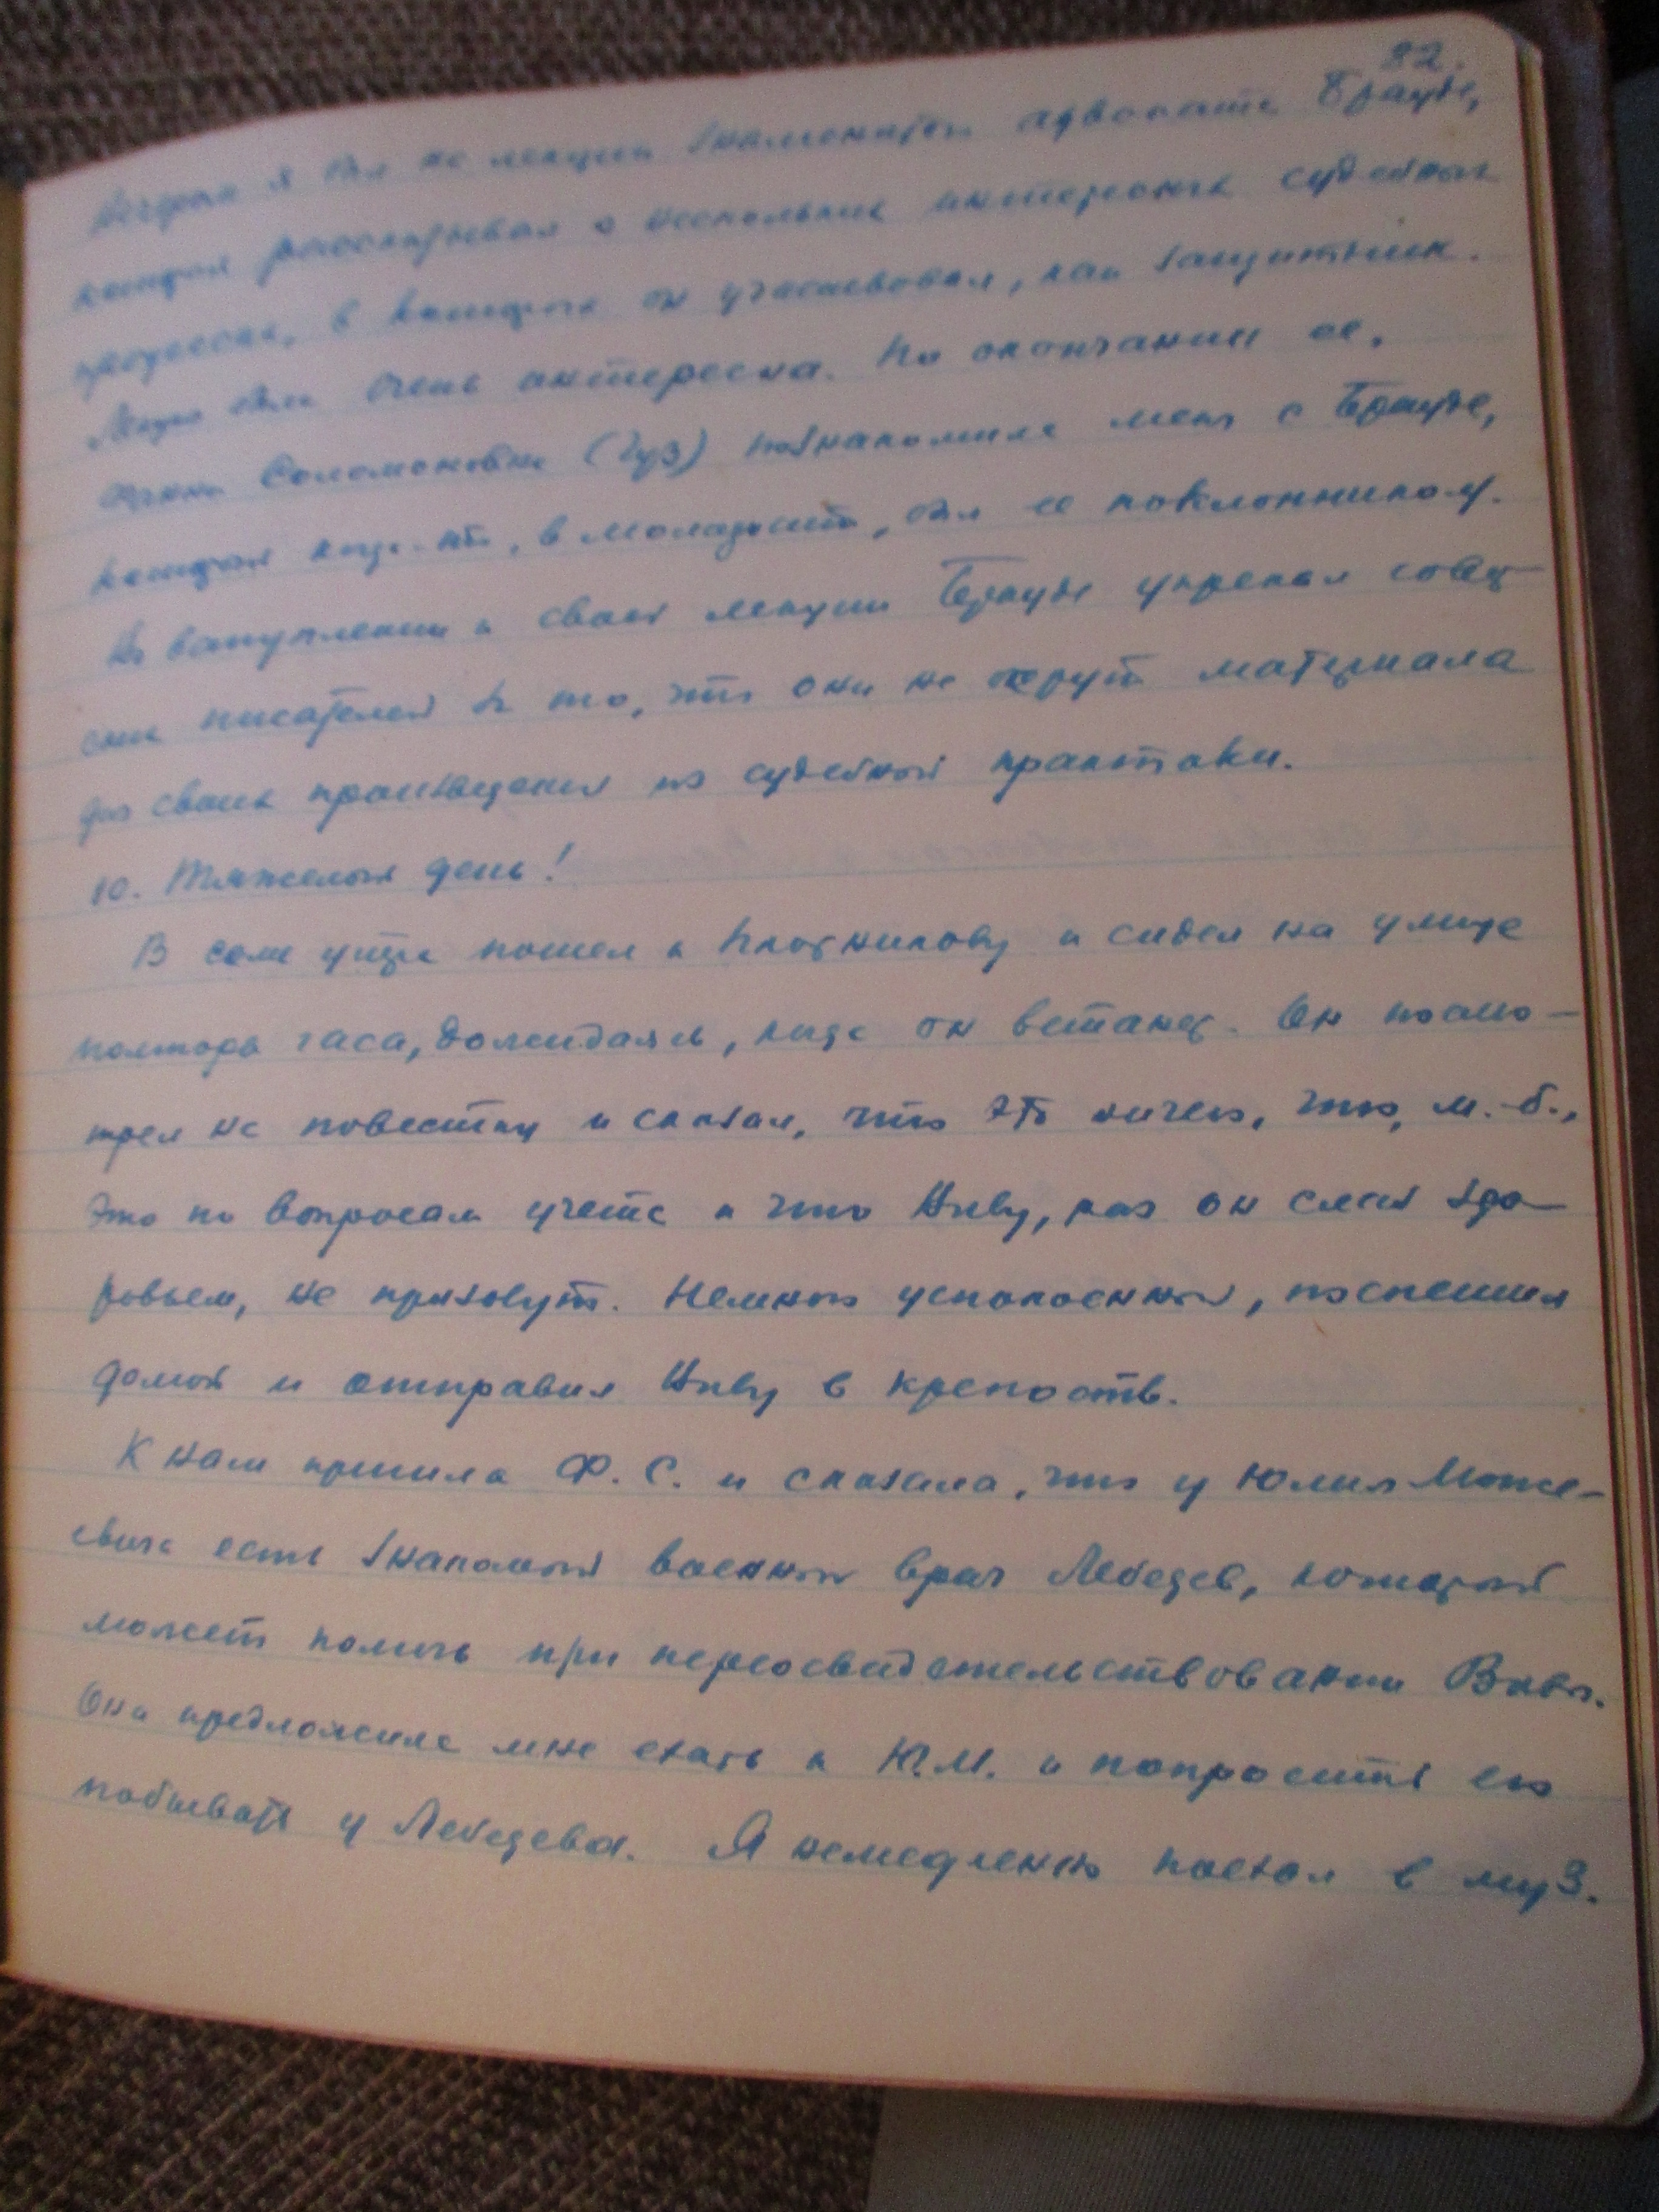 82.
Вечером я был на лекции знаменитого адвоката Брауде,
который рассказывал о нескольких интересных судебных
процессах, в которых он участвовал, как защитник.
Лекция была очень интересна. По окончании ее,
Соломоновна (Гуз) познакомила меня с Брауде,
который когда-то, в молодости, был ее поклонником.
Во вступлении к своей лекции Брауде упрекал совет-
ских писателей в то, что они не берут материала
для своих произведений из судебной практики.
10. Тяжелый день!
В семь утра пошел к и сидел на улице
полтора часа, дожидаясь, когда он встанет. Он посмо-
трел на повестку и сказал, что это ничего, что, м.-б.,
это по вопросам учета и что Виву, раз он слаб здо-
ровьем, не призовут. Немного успокоенный, поспешил
домой и отправил Виву в крепость.
К нам пришла Ф. С. и сказала, что у Юлия Моисе-
евича есть знакомый военный врач Лебедев, который
может помочь при переосвидетельствовании Вивы.
Она предложила мне ехать к Ю.М. и попросить его
побывать у Лебедева. Я немедленно поехал в муз.